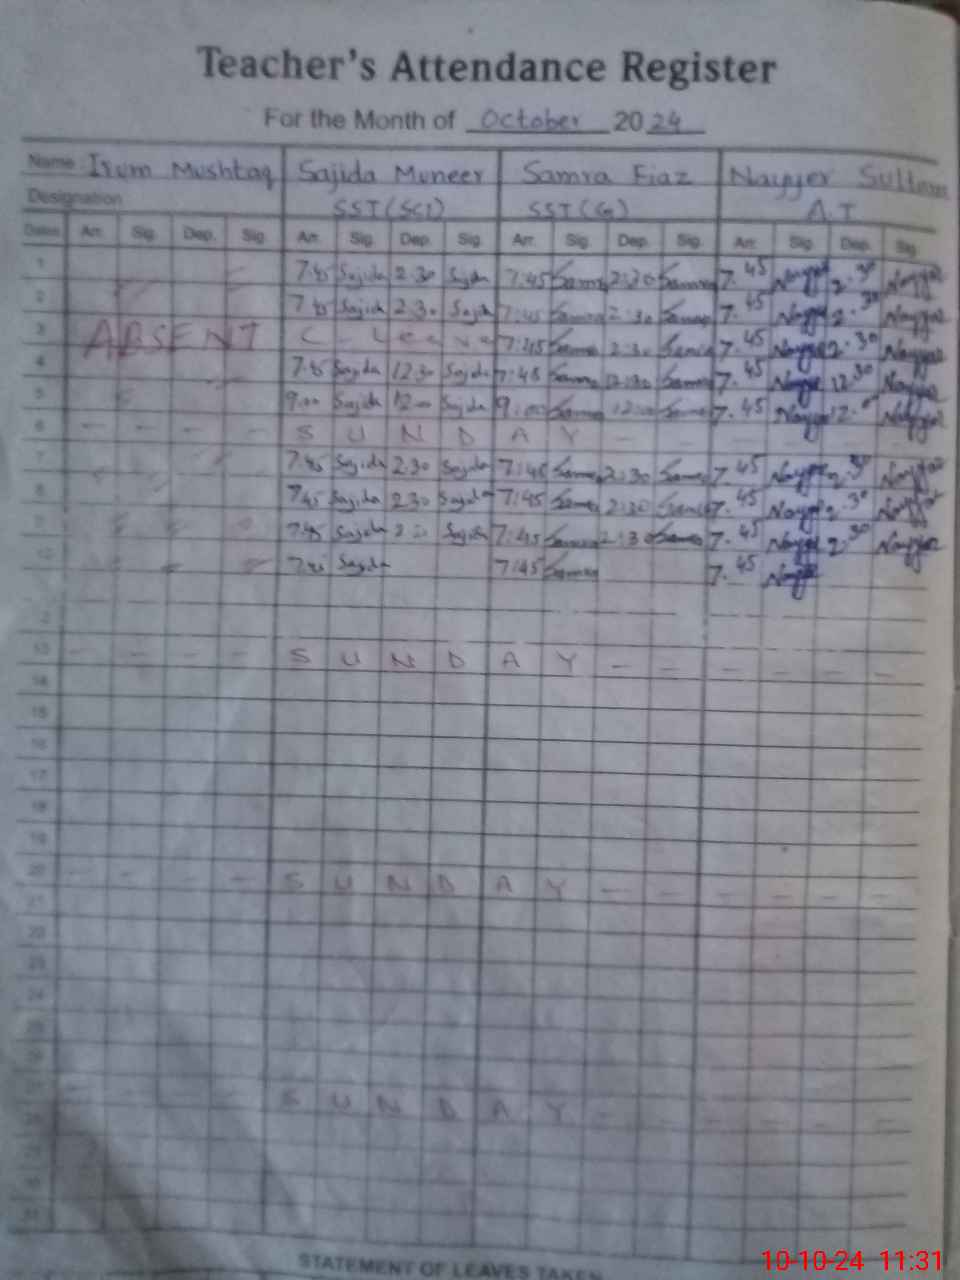 Teacher's Attendance Register
For the Month of October 2024
Name Irum Mushtaq Sajida Muneer Samra Fiaz Nayyer Sultana
Designation SST(SCI) SST(G) A.T
Dates Arr. Sig. Dep. Sig. Arr. Sig. Dep. Sig. Arr. Sig. Dep. Sig. Arr. Sig. Dep. Sig.
1 7:45 Sajida 2:30 Sajida 7:45 Samra 2:30 Samra 7.45 Nayyer 2.30 Nayyer
2 7:45 Sajida 2:30 Sajida 7:45 Samra 2:30 Samra 7.45 Nayyer 2.30 Nayyer
3 ABSENT C- Leave 7:45 Samra 2:30 Samra 7.45 Nayyer 2.30 Nayyer
4 7:45 Sajida 12:30 Sajida 7:45 Samra 12:30 Samra 7.45 Nayyer 12.30 Nayyer
5 9:00 Sajida 12:00 Sajida 9:00 Samra 12:00 Samra 7.45 Nayyer 12. Nayyer
6 - - - - S U N D A Y - - - - - -
7 7:45 Sajida 2:30 Sajida 7:45 Samra 2:30 Samra 7.45 Nayyer 2.30 Nayyer
8 7:45 Sajida 2:30 Sajida 7:45 Samra 2:30 Samra 7.45 Nayyer 2.30 Nayyer
9 7:45 Sajida 2:30 Sajida 7:45 Samra 2:30 Samra 7.45 Nayyer 2.30 Nayyer
10 7:45 Sajida 7:45 Samra 7.45 Nayyer
12
13 - - - - S U N D A Y - - - - - -
14
15
16
17
18
19
20 - - - - S U N D A Y - - - - - -
21
22
23
24
25
26
27 S U N D A Y -
28
29
30
31
STATEMENT OF LEAVES TAKEN
10-10-24 11:31